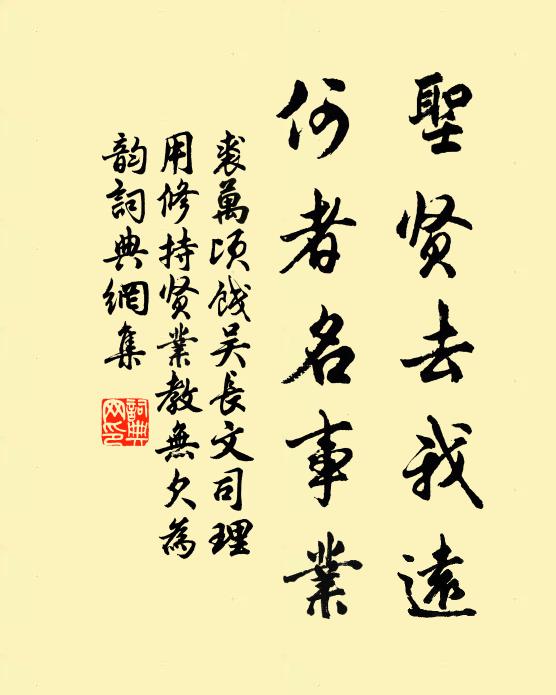 聖贤去我遠
何者名事業
裘萬頃餞吴長文司理
用修持贤業教無欠為
韵詞典網集
詞典
网印